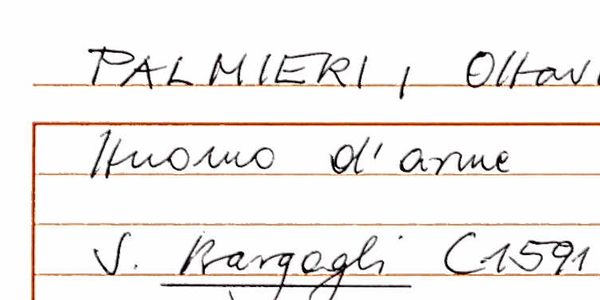 PALMIERI, Ottavi
Huomo d'arme
S. Bargagli (1591